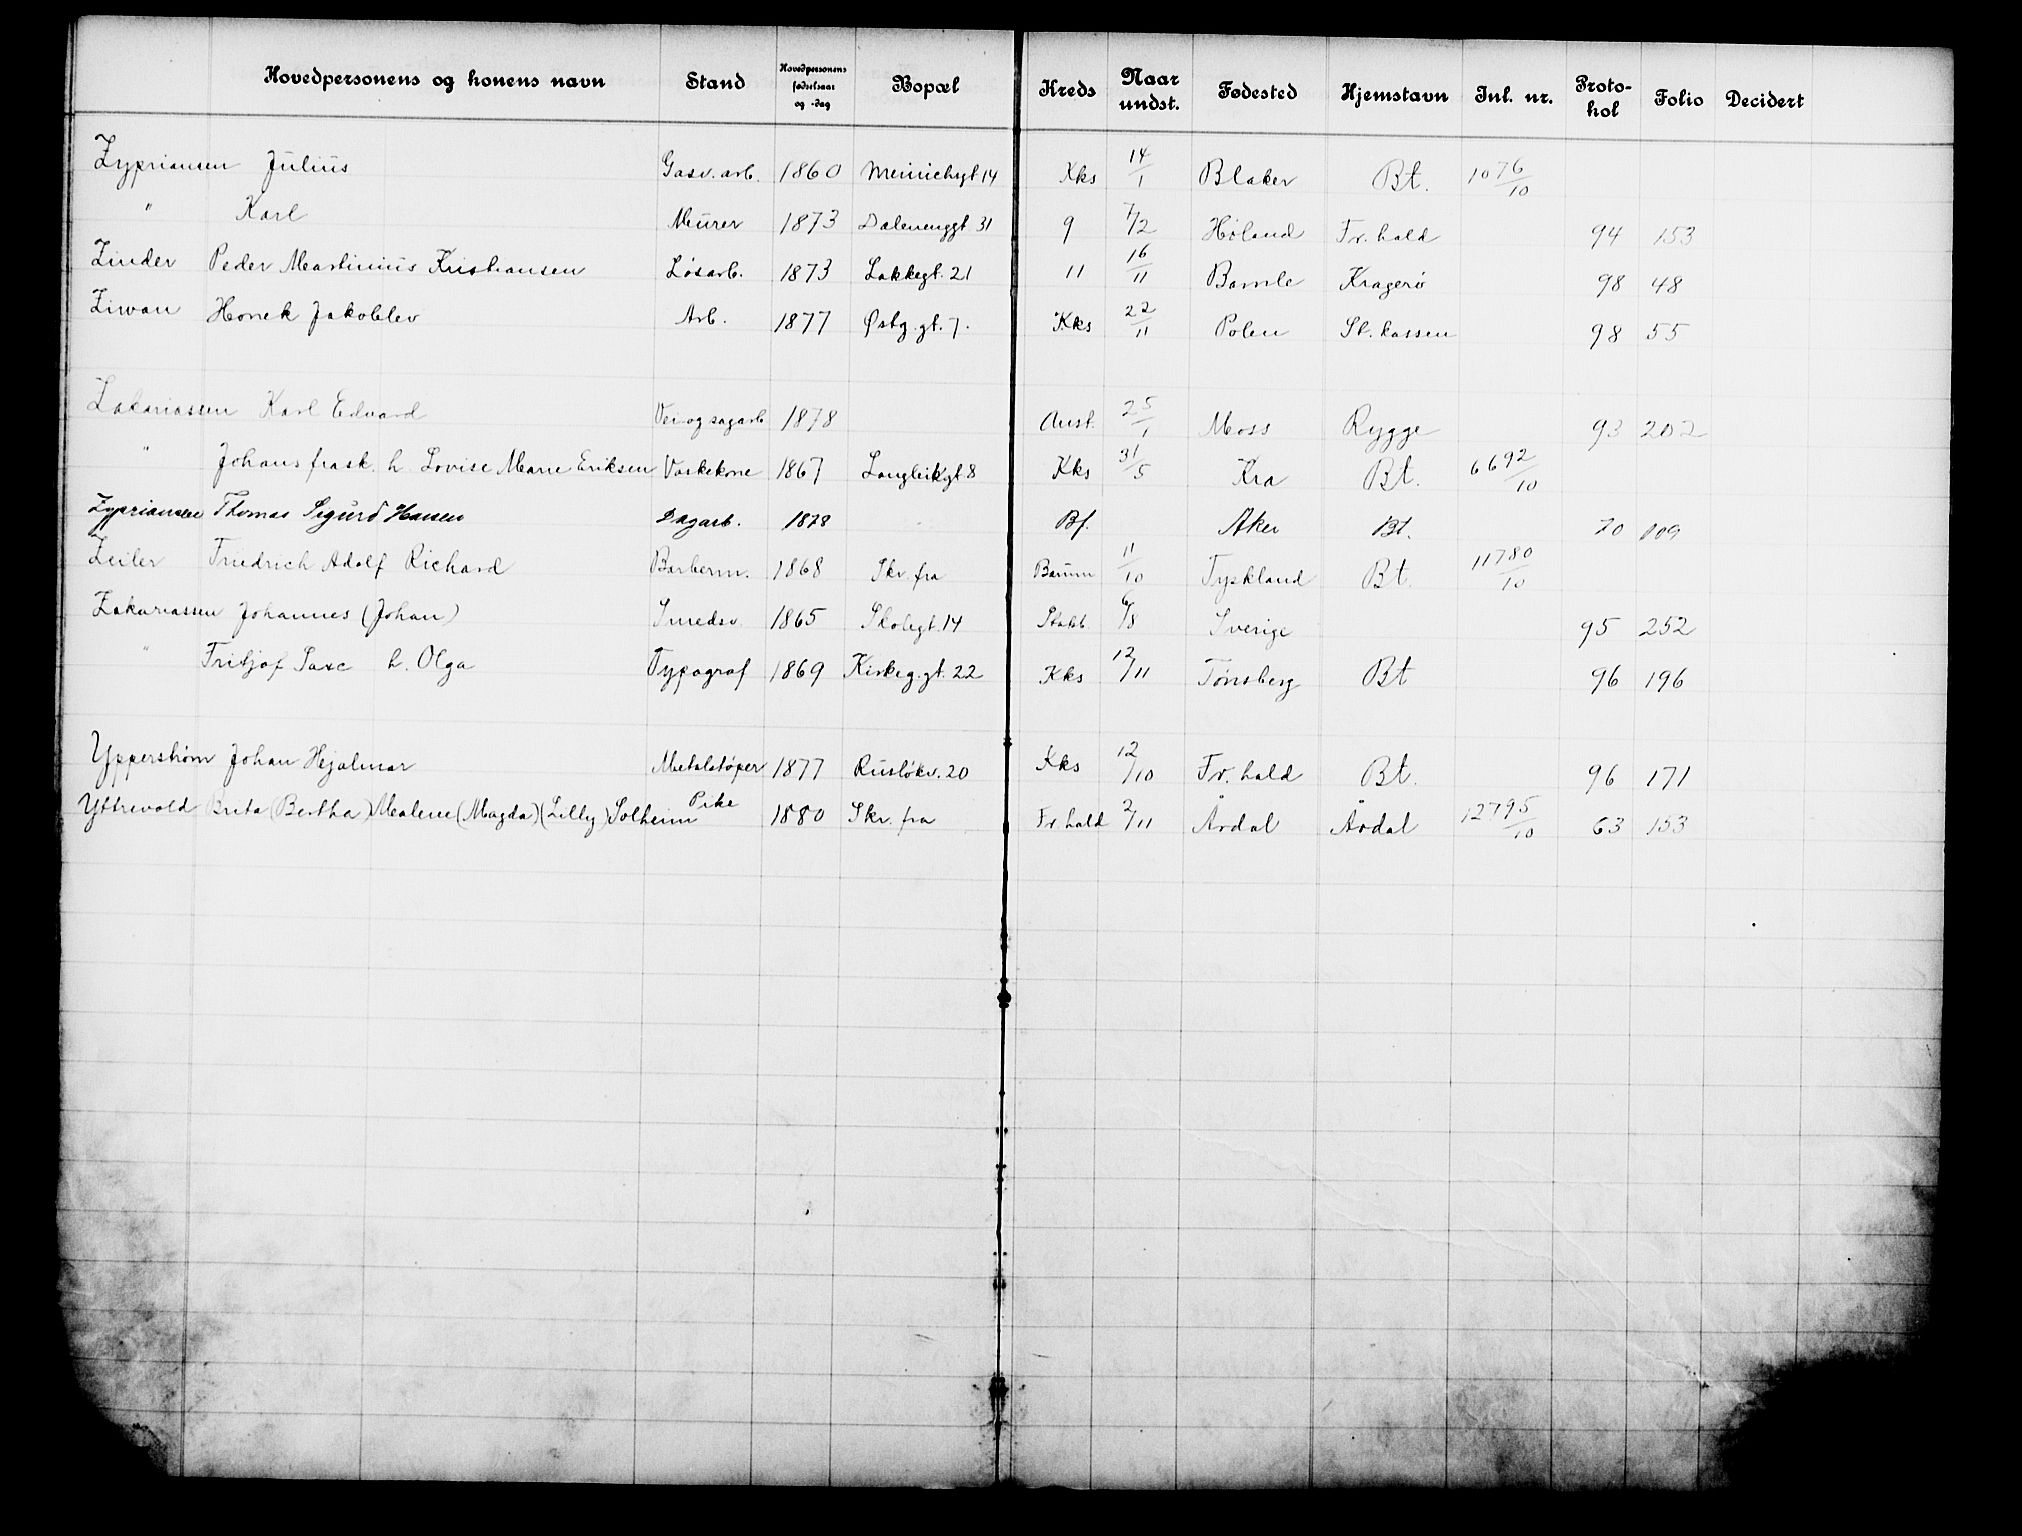 Hovedpersonens og konens navn Stand Hovedpersonens fødselsaar og -dag Bopæl Kreds Naar undst. Fødested Hjemstavn Inl. nr. Proto-kol Folio Decidert
Zypriansen Julius Gasv. arb. 1860 14 Kks 14/1 Blaker Bt. 1076/10
" Karl Murer 1873 Dælenenggt 31 9 7/2 Høland Fr. hald 94 153
Zinder Peder Martinius Kristiansen Løsarb. 1873 Lakkegt. 21 11 16/11 Bamle Kragerø 98 48
Ziwan Jakoblev Arb. 1877 Østg. gt. 7. Kks 22/11 Polen St. kassen 98 55
Zakariassen Karl Edvard Vei og sagarb 1878 Aust. 25/1 Moss Rygge 93 202
" Johans frask. h. Lovise Marie Eriksen Vaskekone 1867 Langleikgt 8 Kks 31/5 Kra Bt. 6692/10
Zypriansen Thomas Sigurd Hansen Dagarb. 1878 Bf. Aker Bt. 70 109
Zeiler Friedrich Adolf Richard Barberm. 1868 Skr. fra Bærum 11/10 Tyskland Bt. 11780/10
Zakariassen Johannes (Johan) Smedsv. 1865 Skolegt. 14 Stabb. 6/8 Sverige 95 252
" Fritjof Saxe h. Olga Typograf 1869 Kirkeg. gt. 22 Kks 12/11 Tønsberg Bt 96 196
Ypperstrøm Johan Hjalmar Metalstøper 1877 Rusløkv. 20 Kks 12/10 Fr. hald Bt. 96 171
Yttrevold Brita (Bertha) Malene (Magda) (Lilly) Solheim Pike 1880 Skr. fra Fr. hald 2/11 Årdal Årdal 12795/10 63 153